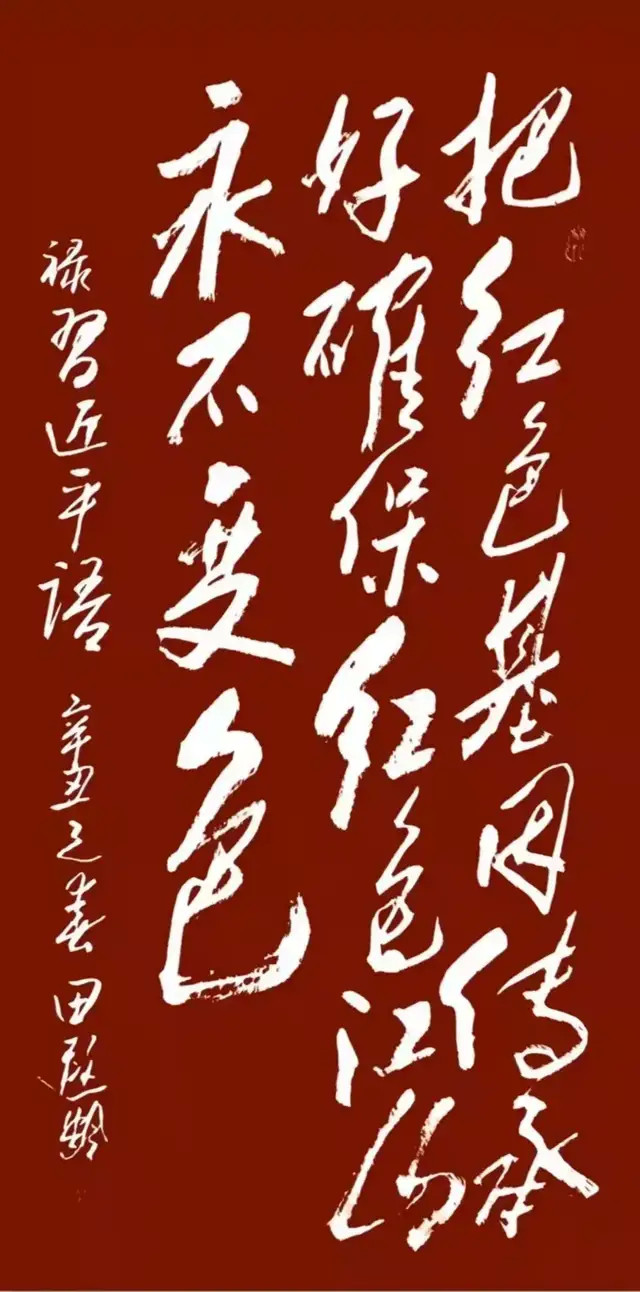 把红色基因传承
好确保红色江山
永不变色
禄习近平语 辛丑之春 田